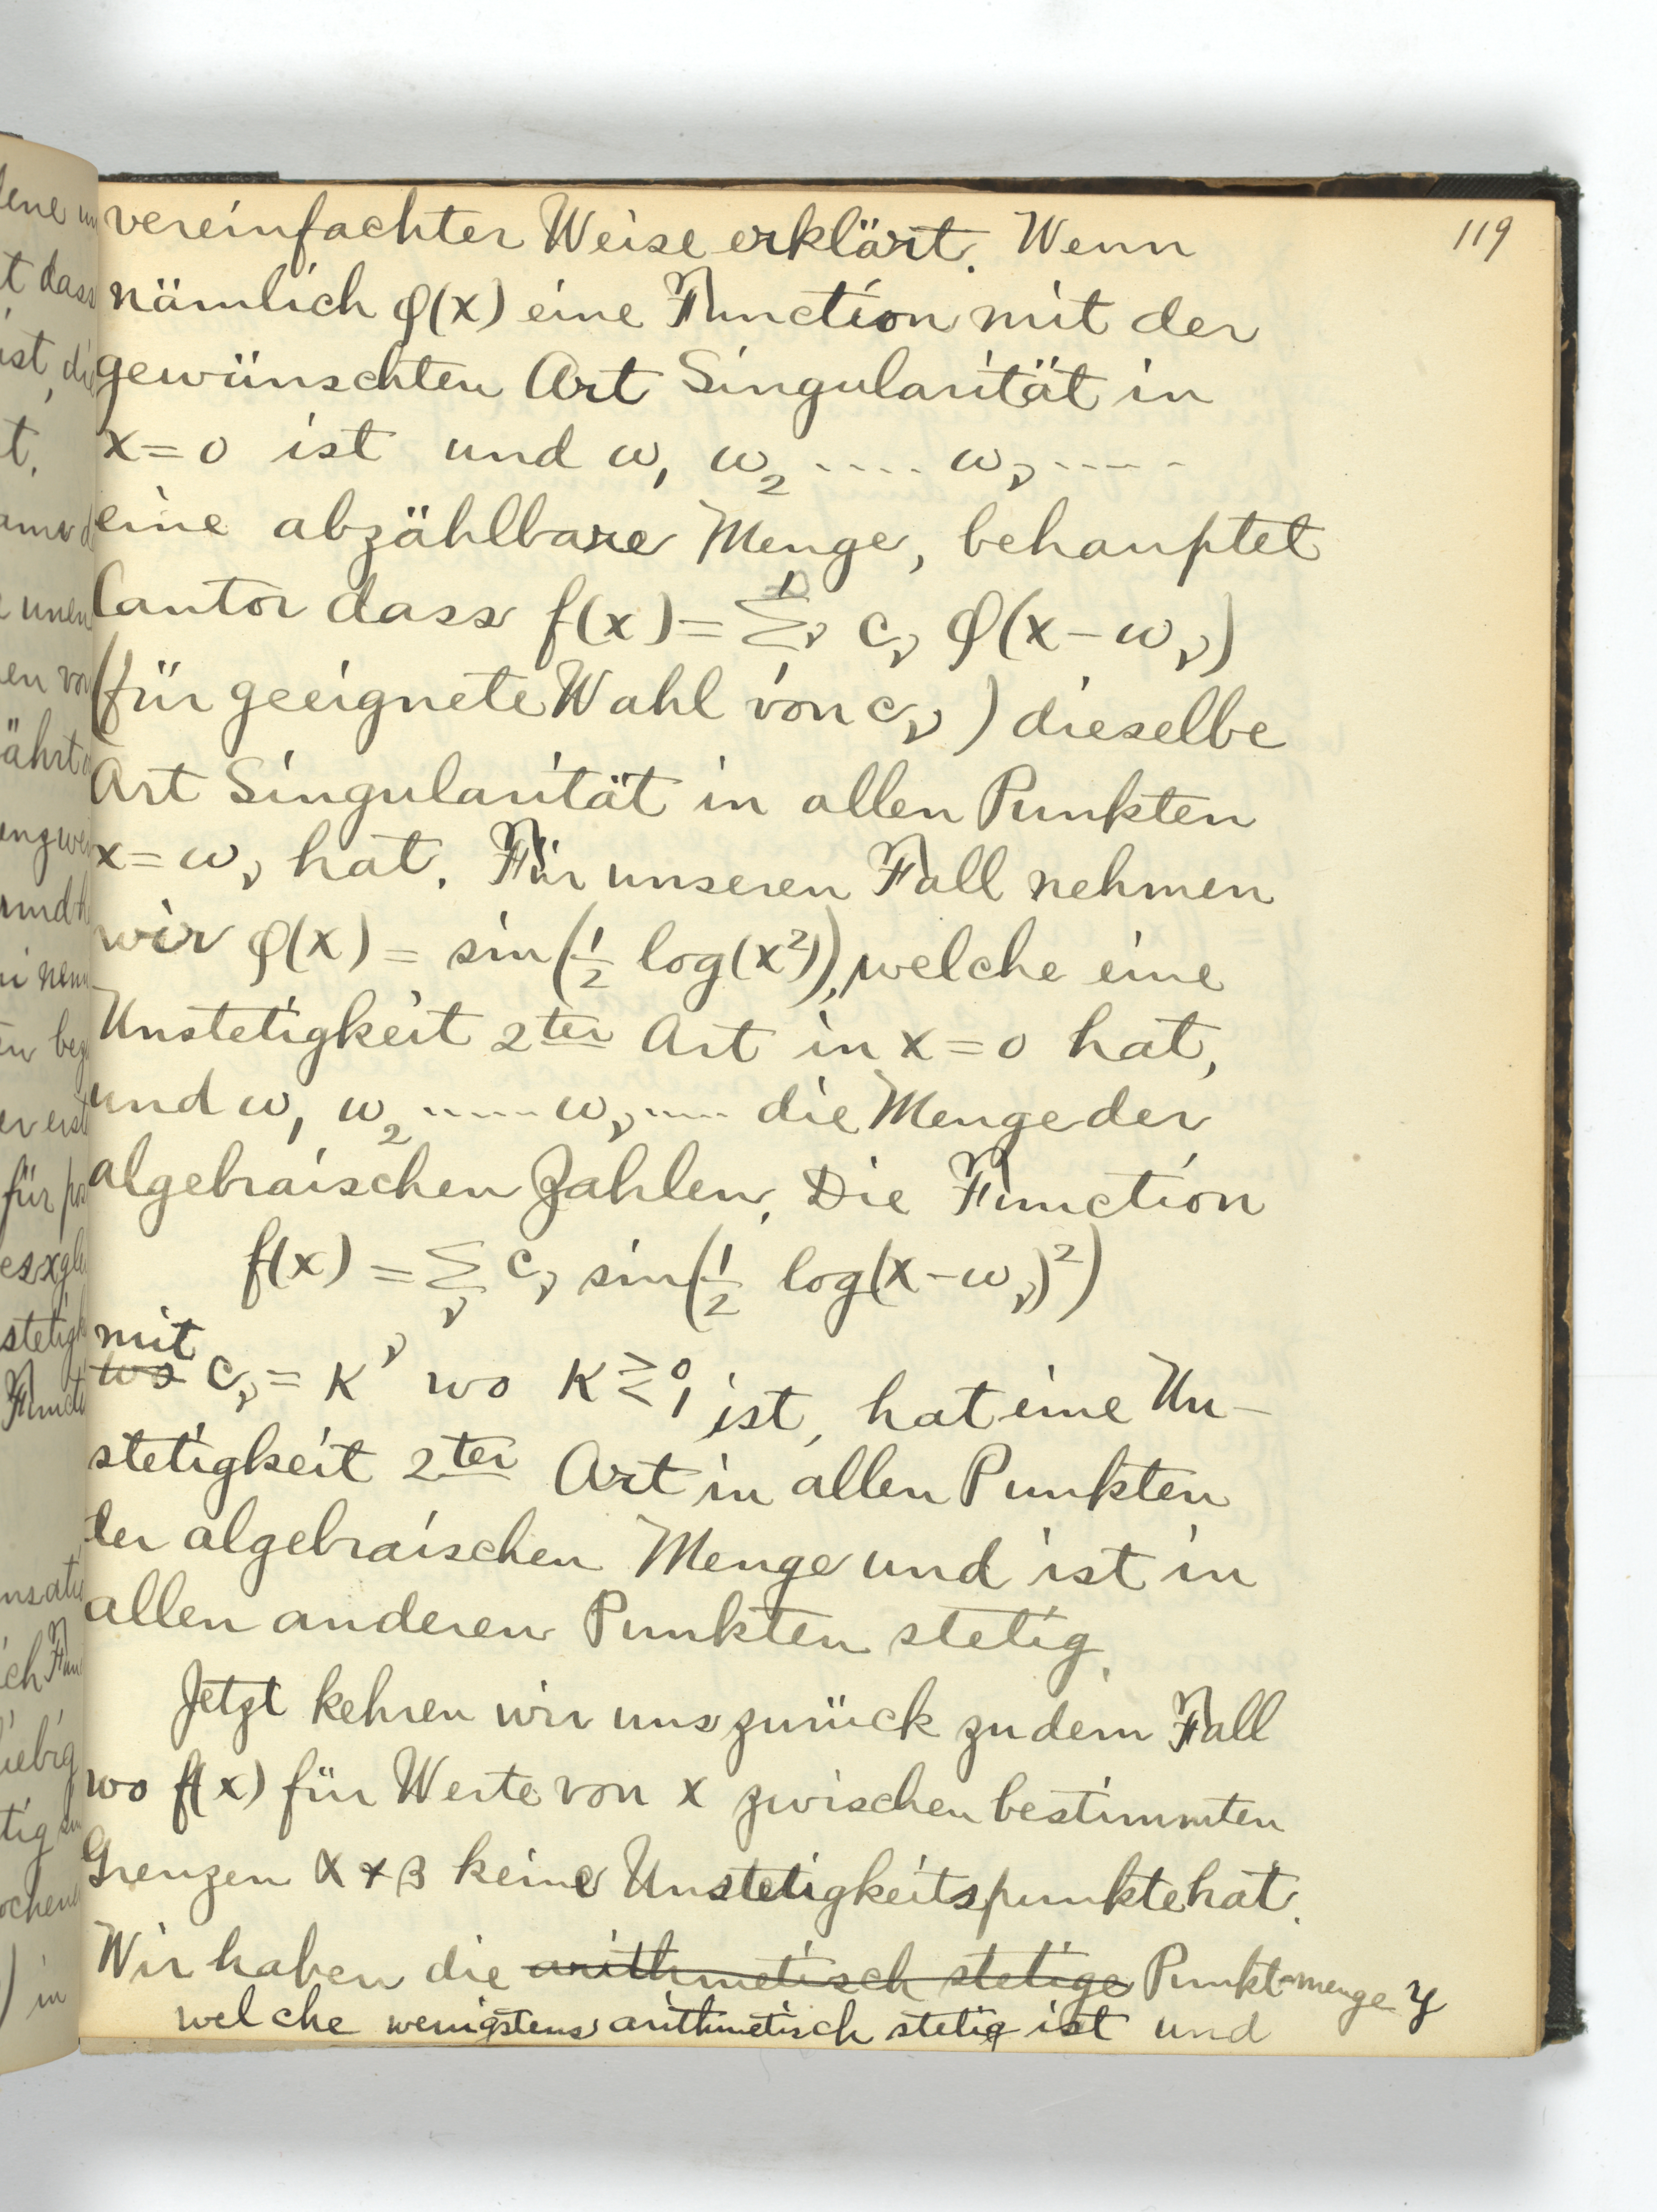 119
vereinfachter Weise erklärt. Wenn
nämlich φ(x) eine Function mit der
gewünschten Art Singularität in
x=0 ist und ω₁ ω₂ .... ω_ν .....
eine abzählbare Menge, behauptet
Cantor dass f(x) = Σ_ν c_ν φ(x-ω_ν)
(für geeignete Wahl von c_ν) dieselbe
Art Singularität in allen Punkten
x=ω_ν hat. Für unseren Fall nehmen
wir φ(x) = sin(1/2 log(x²)), welche eine
Unstetigkeit 2ter Art in x=0 hat,
und ω₁ ω₂ ..... ω_ν ..... die Menge der
algebraischen Zahlen. Die Function
f(x) = Σ_ν c_ν sin(1/2 log(x-ω_ν)²)
mit
wo c_ν = K^ν wo K ≷ 0, 1 ist, hat eine Un-
stetigkeit 2ter Art in allen Punkten
der algebraischen Menge und ist in
allen anderen Punkten stetig.
Jetzt kehren wir uns zurück zu dem Fall
wo f(x) für Werte von x zwischen bestimmten
Grenzen α + β keine Unstetigkeitspunkte hat.
Wir haben die arithmetisch stetige Punktmenge y
welche wenigstens arithmetisch stetig ist und